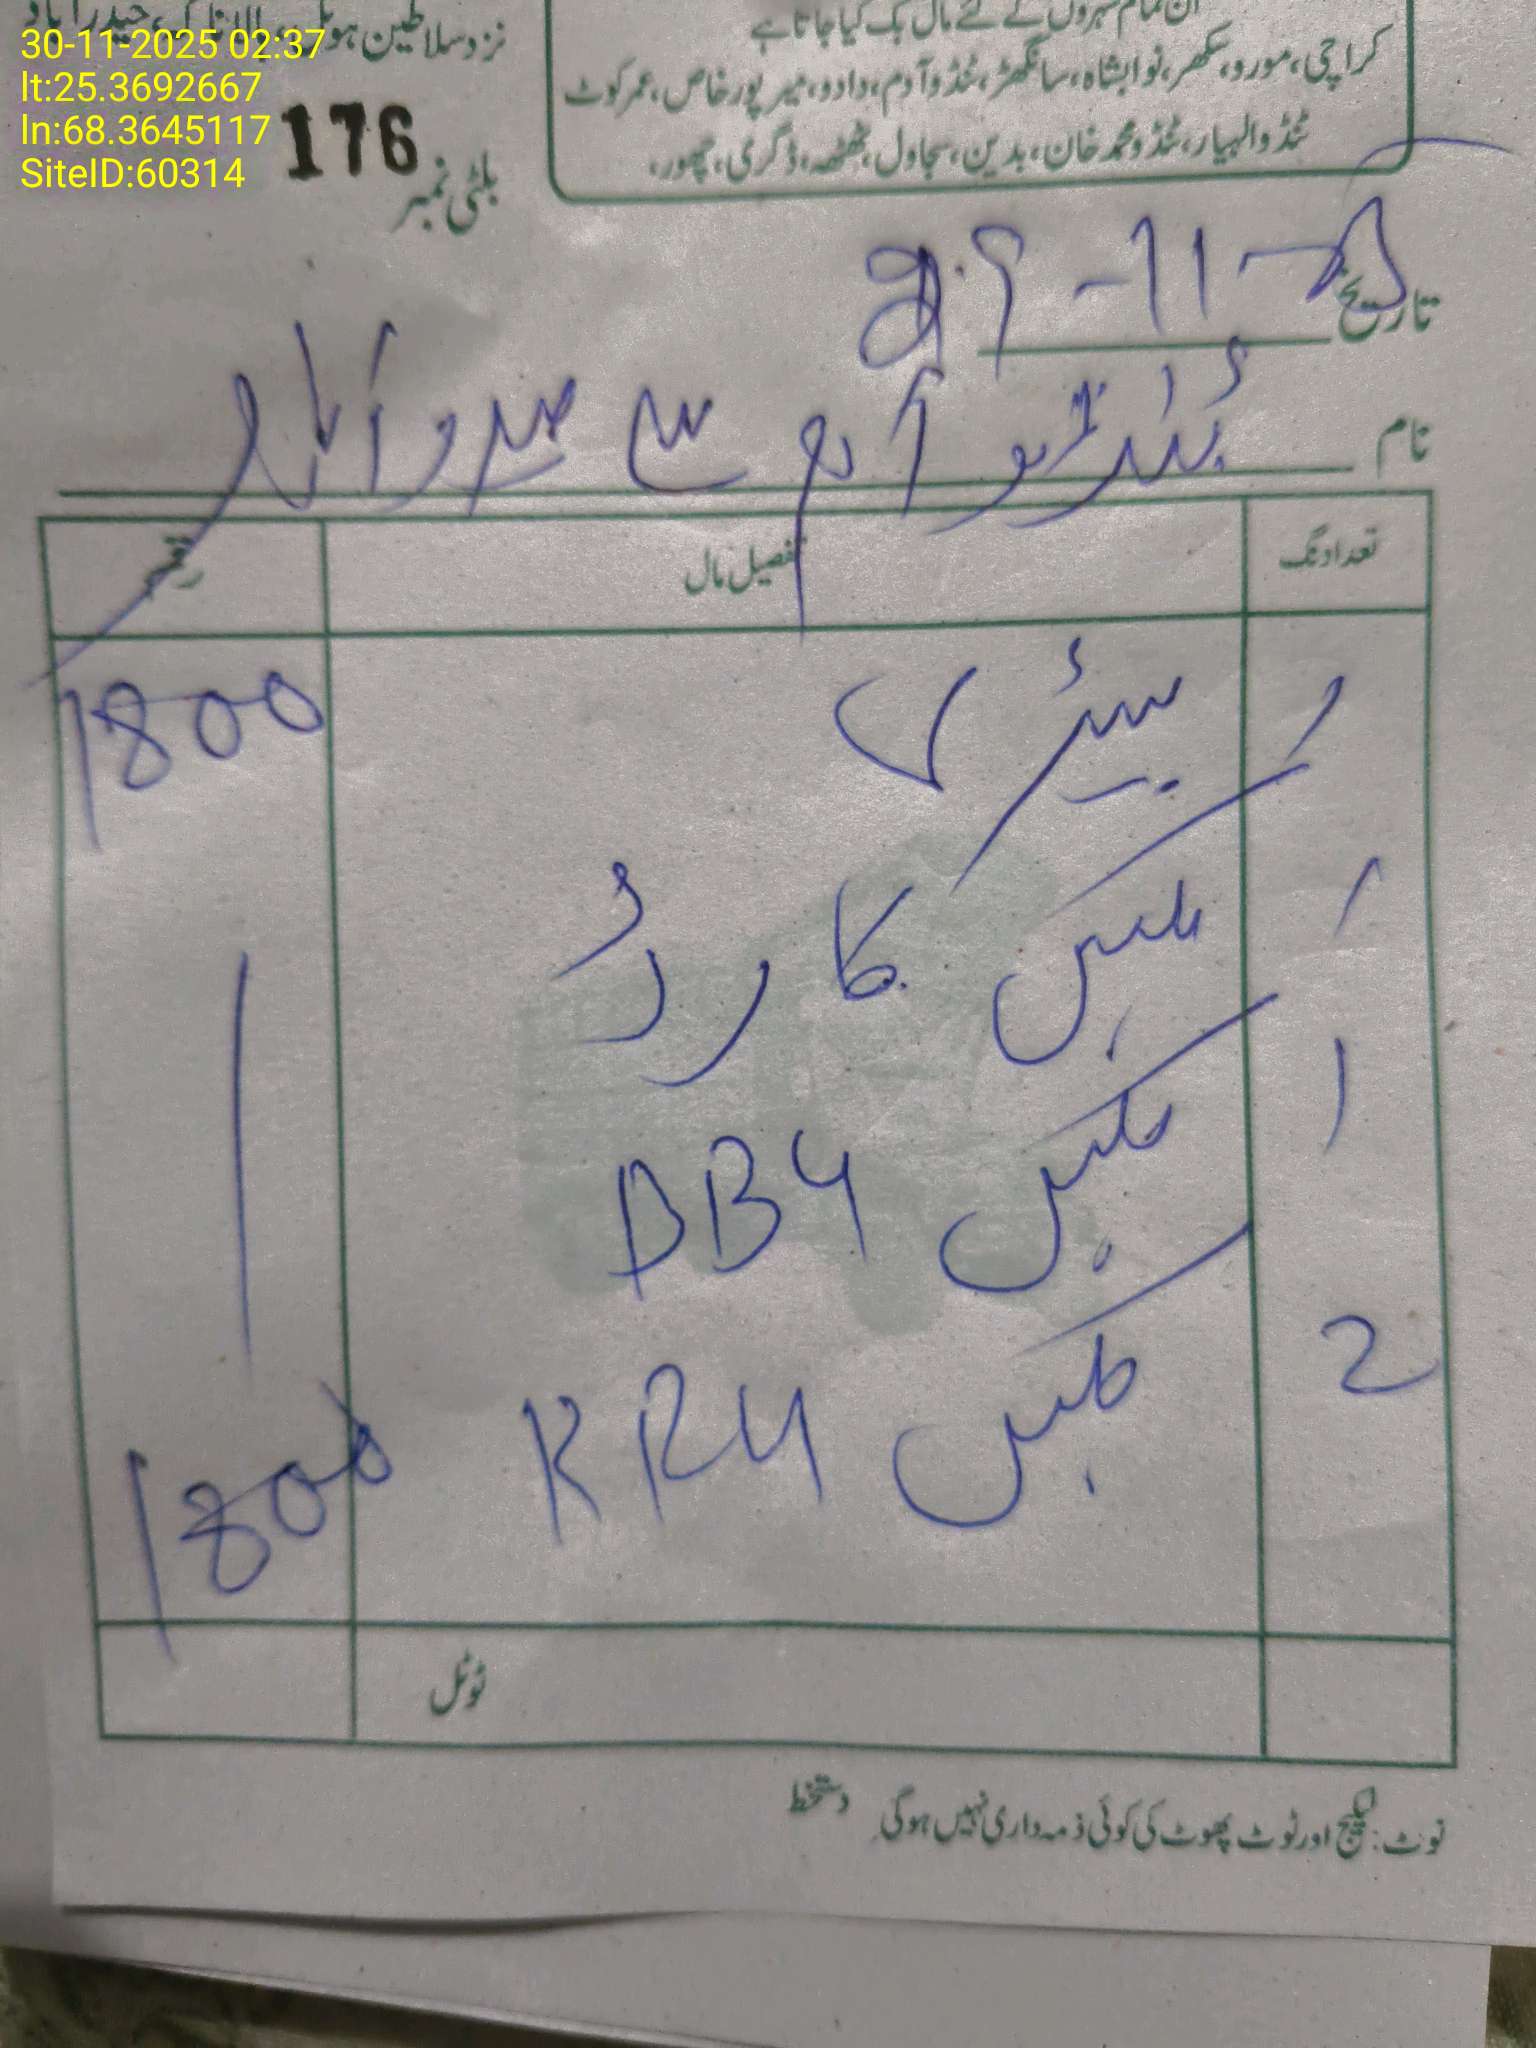 30-11-2025 02:37
lt:25.3692667
ln:68.3645117
SiteID:60314
ان تمام شہروں کے لئے مال بک کیا جاتا ہے
کراچی، مورو، سکھر، نوابشاہ، سانگھڑ، ٹنڈوآدم، دادو، میرپورخاص، عمرکوٹ
ٹنڈوالہیار، ٹنڈومحمدخان، بدین، سجاول، ٹھٹھہ، ڈگری، چھور،
نزد سلاطین ہوٹل، ہالا ناکہ، حیدرآباد
بلٹی نمبر 176
تاریخ 29-11-25
نام ٹنڈو آدم سے حیدرآباد
تعداد نگ تفصیل مال رقم
1800
1 بکس کارڈ
1 بکس BB4
2 بکس KR4
1800
ٹوٹل
نوٹ: لیکیج اور ٹوٹ پھوٹ کی کوئی ذمہ داری نہیں ہوگی. دستخط